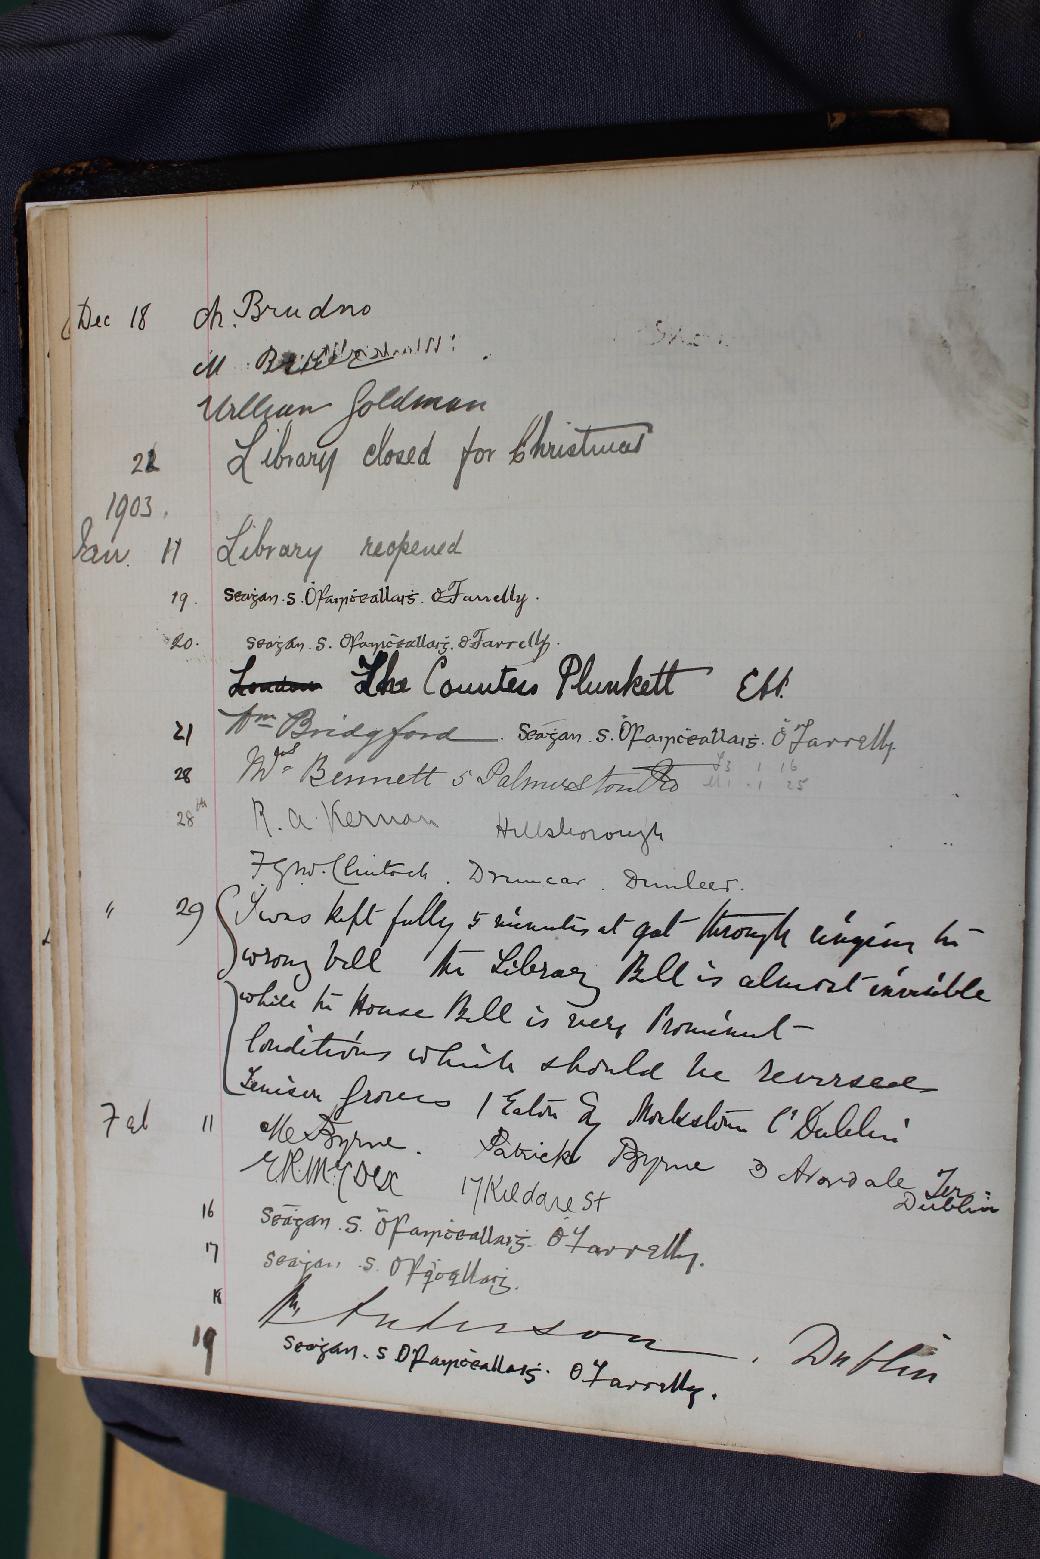 Dec 18 M. Brudno
M
William Goldman
22 Library closed for Christmas
1903.
Jan. 17 Library reopened
19. Seaġan. S. Ó Farrelly.
20. Seaġan. S. Ó Farrelly.
London The Countess Plunkett
21 Wm Bridgford. Seaġan. S. Ó Farrelly
28 Mrs Bennett 5 Palmerston Rd
28th R. A. Kernan Hillsborough
Clintock. Drumcar. Dunleer.
" 29 I was kept fully 5 minutes at gat through ringing the
wrong bell the Library Bell is almost invisible
while the House Bell is very Prominent
Conditions which should be reversed
Groves 1 Eaton Sq Monkstown Co Dublin
Feb 11 Mc Byrne. Patrick Byrne 3 Avondale Ter
Dublin
E R McC Dix 17 Kildare St
16 Seaġan. S. Ó Farrelly.
17 Seaġan. S.
18 Anderson. Dublin
19 Seaġan. S Ó Farrelly.